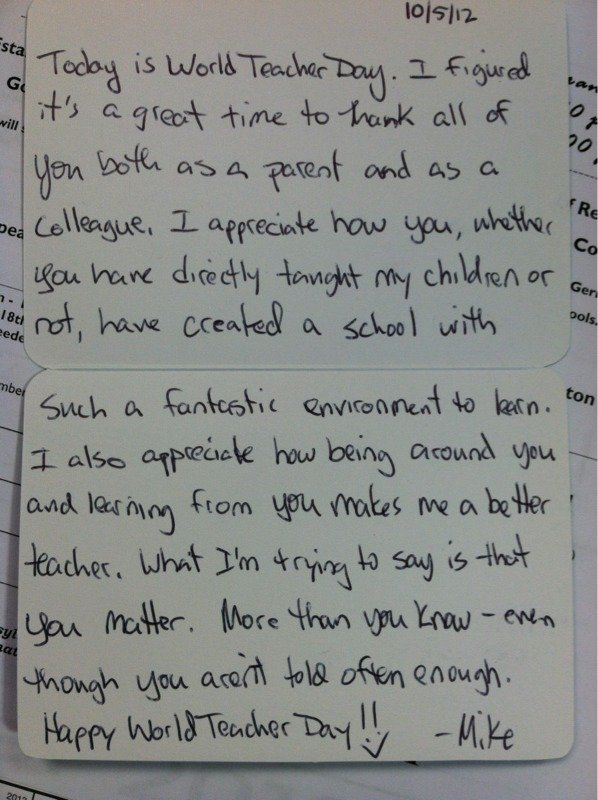 10/5/12
Today is World Teacher Day. I figured
it's a great time to thank all of
you both as a parent and as a
colleague. I appreciate how you, whether
you have directly taught my children or
not, have created a school with
such a fantastic environment to learn.
I also appreciate how being around you
and learning from you makes me a better
teacher. What I'm trying to say is that
you matter. More than you know - even
though you aren't told often enough.
Happy World Teacher Day!! -Mike
will
18th
mber
Re
Co
Ger
ools.
ton
2012